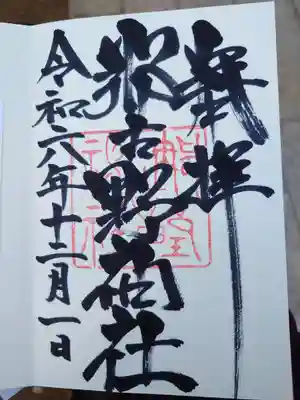 奉拝
那古野神社
令和六年十二月一日